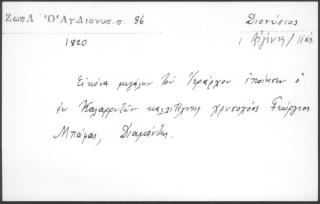 Ζωπλ Ὁ Ἁγ Διονυσ. σ. 86
Διονύσιος
Αἰγίνης /
1820
Εἰκόνα μεγάλην τοῦ Ἱεράρχου ἐποίησεν ὁ
ἐν Καλαρρυτῶν καλλιτέχνης χρυσοχόος Γεώργιος
Μπάφας, Διαμάντης.